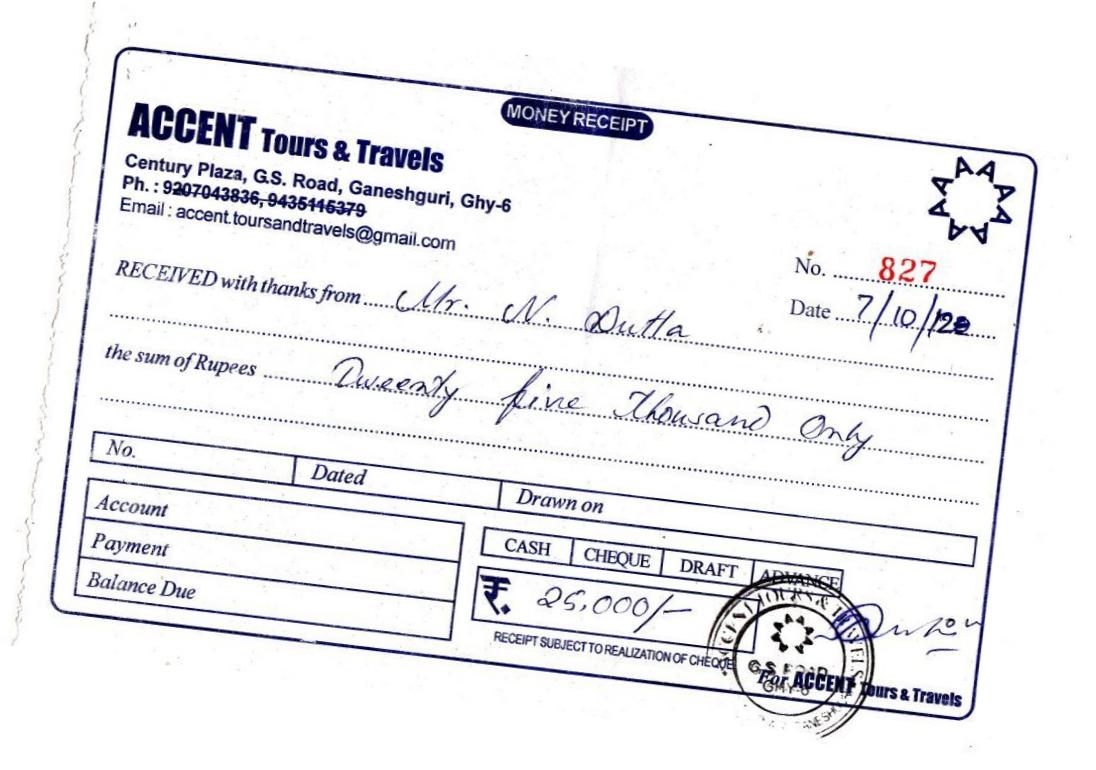 MONEY RECEIPT
ACCENT Tours & Travels
Century Plaza, G.S. Road, Ganeshguri, Ghy-6
Ph. : 9207043836, 9435115379
Email : accent.toursandtravels@gmail.com
No. 827
Date 7/10/
RECEIVED with thanks from Mr. N. Dutta
the sum of Rupees Tweenty five Thousand Only
No. Dated Drawn on
Account
Payment
Balance Due
CASH CHEQUE DRAFT ADVANCE
₹. 25,000/-
RECEIPT SUBJECT TO REALIZATION OF CHEQUE
For ACCENT Tours & Travels
ACCENT TOURS & TRAVELS
G.S. ROAD
GHY-6